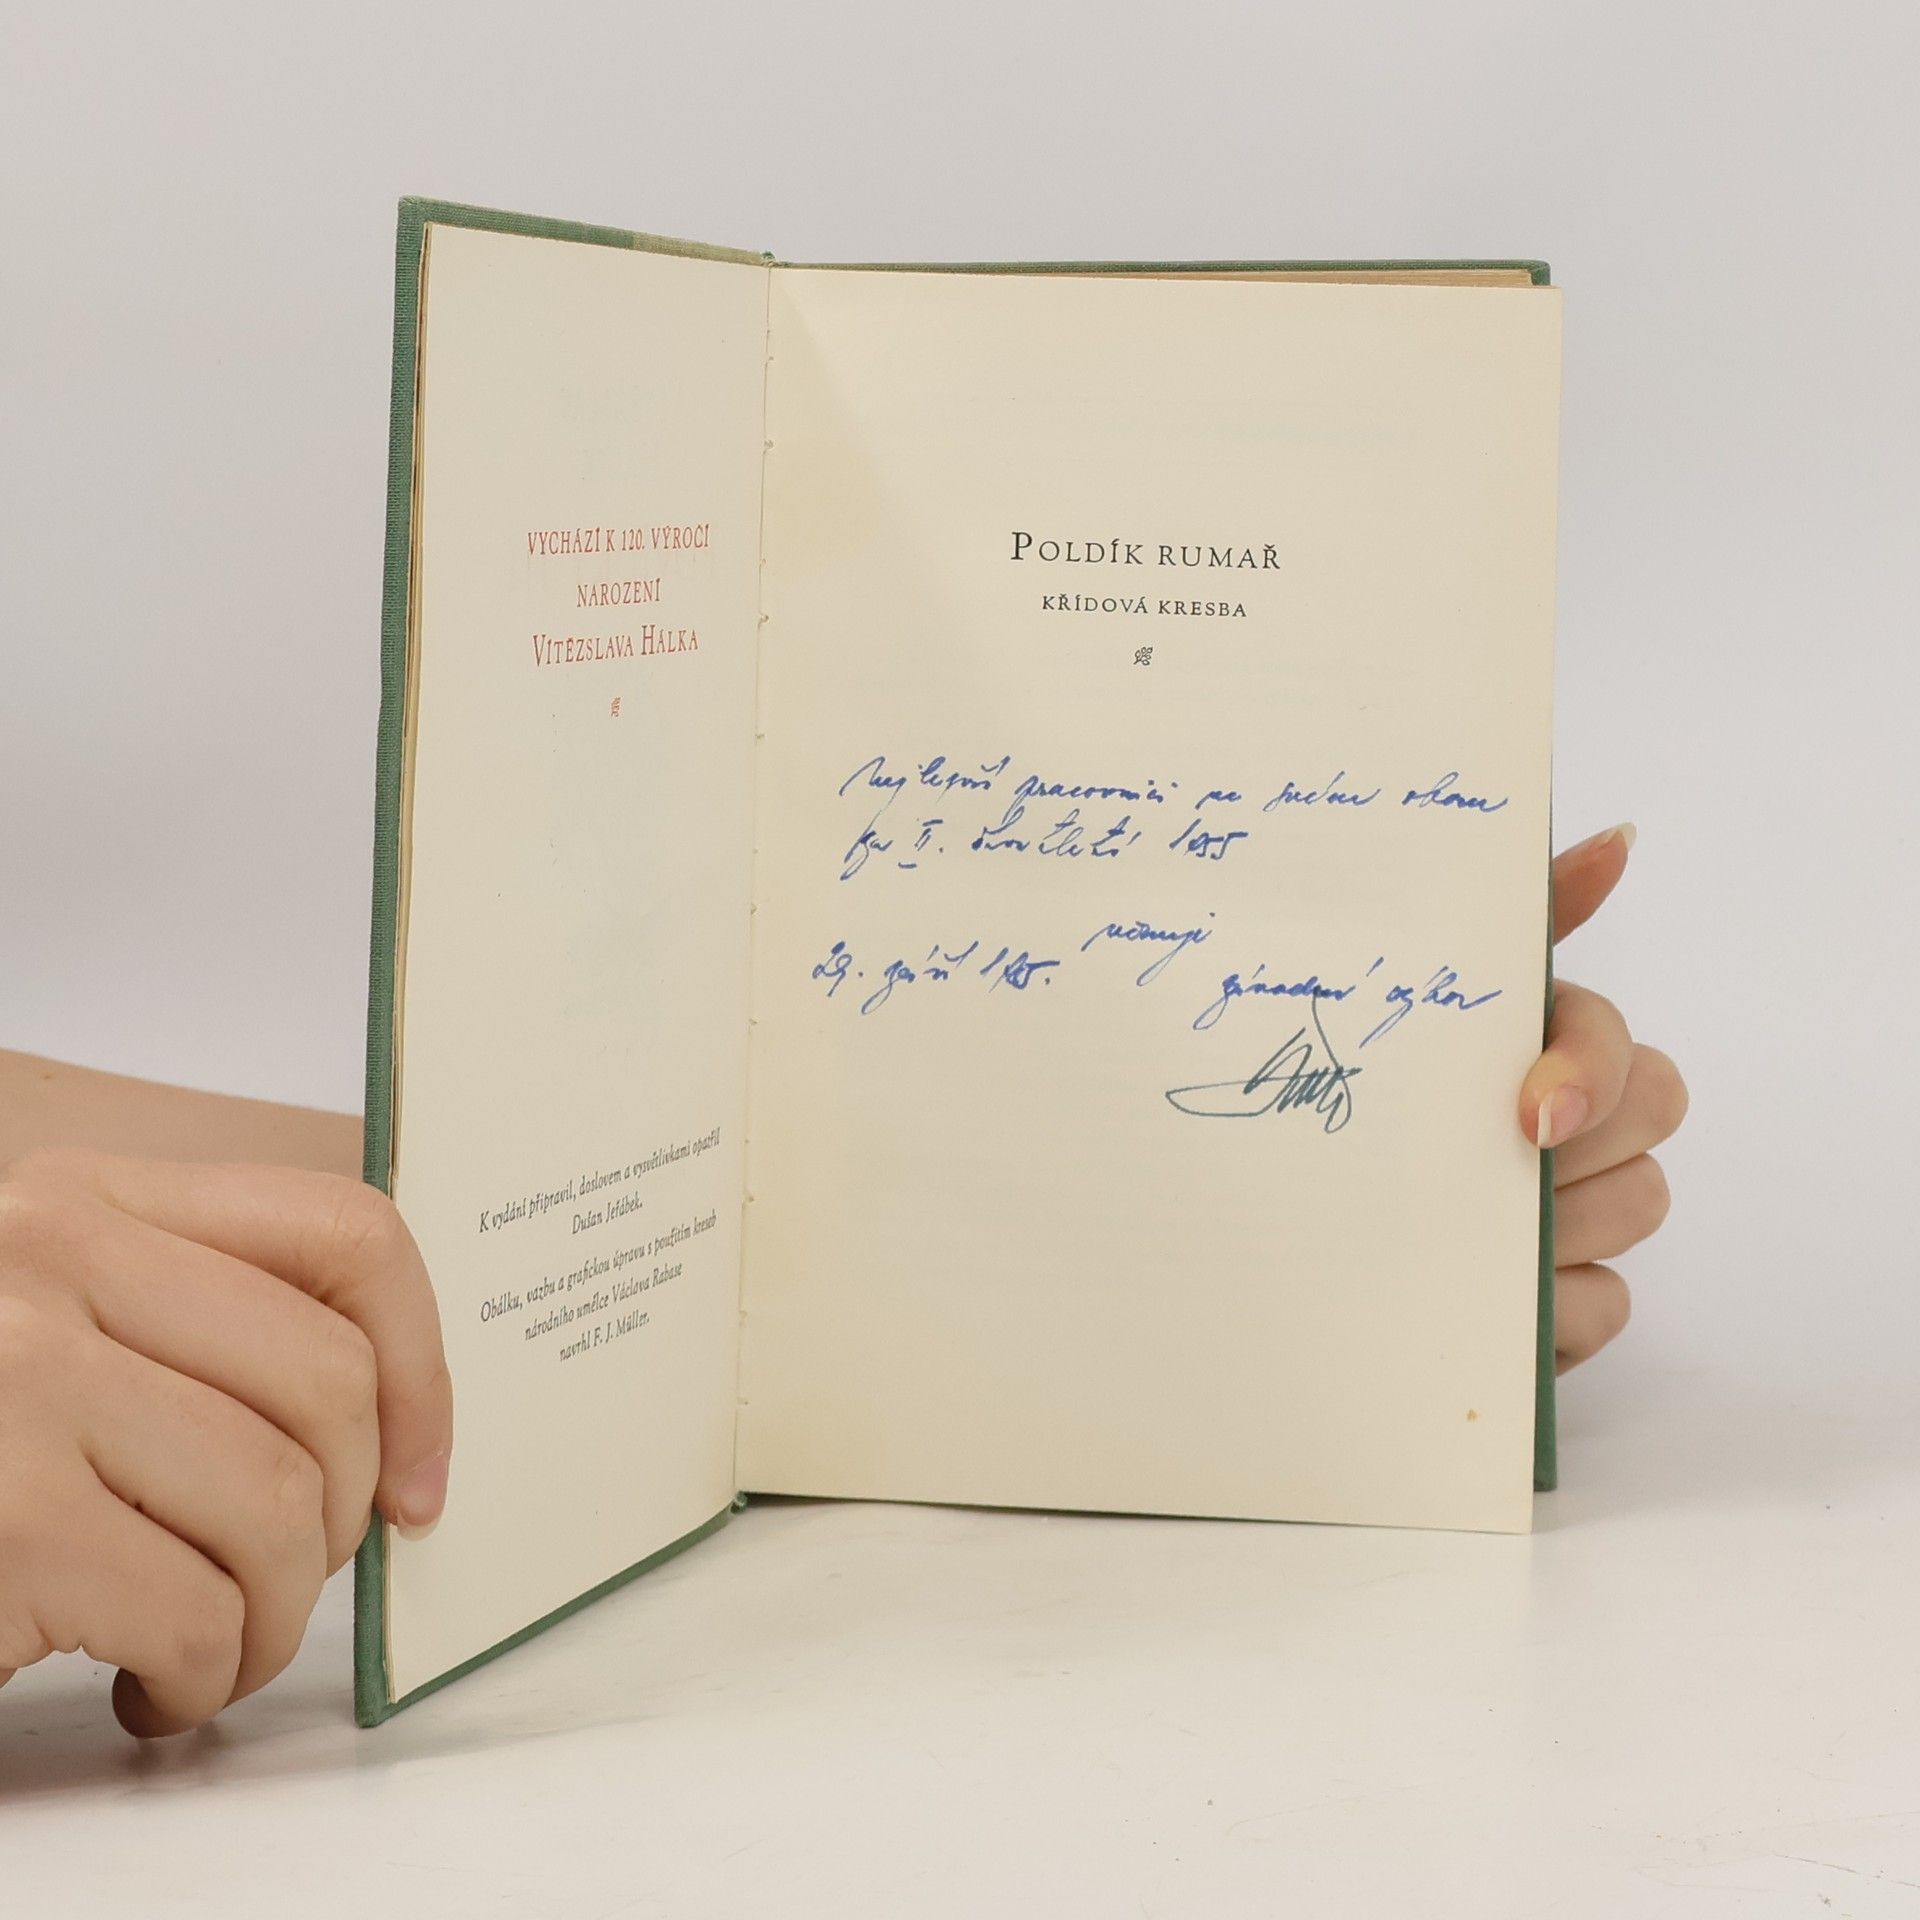 VYCHÁZÍ K 120. VÝROČÍ
NAROZENÍ
VÍTĚZSLAVA HÁLKA
K vydání připravil, doslovem a vysvětlivkami opatřil
Dušan Jeřábek.
Obálku, vazbu a grafickou úpravu s použitím kreseb
národního umělce Václava Rabase
navrhl F. J. Müller.
POLDÍK RUMAŘ
KŘÍDOVÁ KRESBA
Nejlepší pracovnici ve svém oboru
za II. čtvrtletí 1955
věnuje
29. září 1955.
závodní výbor